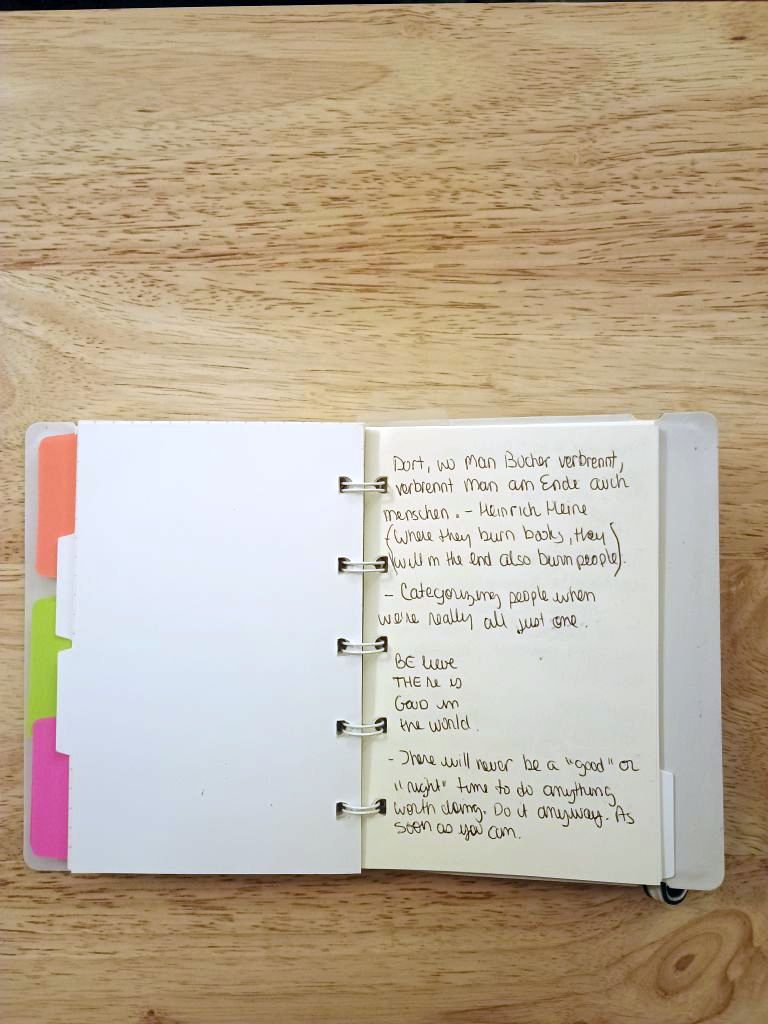 Dort, wo man Bücher verbrennt,
verbrennt man am Ende auch
menschen. - Heinrich Heine
(Where they burn books, they
will in the end also burn people).
- Categorizing people when
we're really all just one.
BE lieve
THEre is
GOOD in
the world.
- There will never be a "good" or
"right" time to do anything
worth doing. Do it anyway. As
soon as you can.